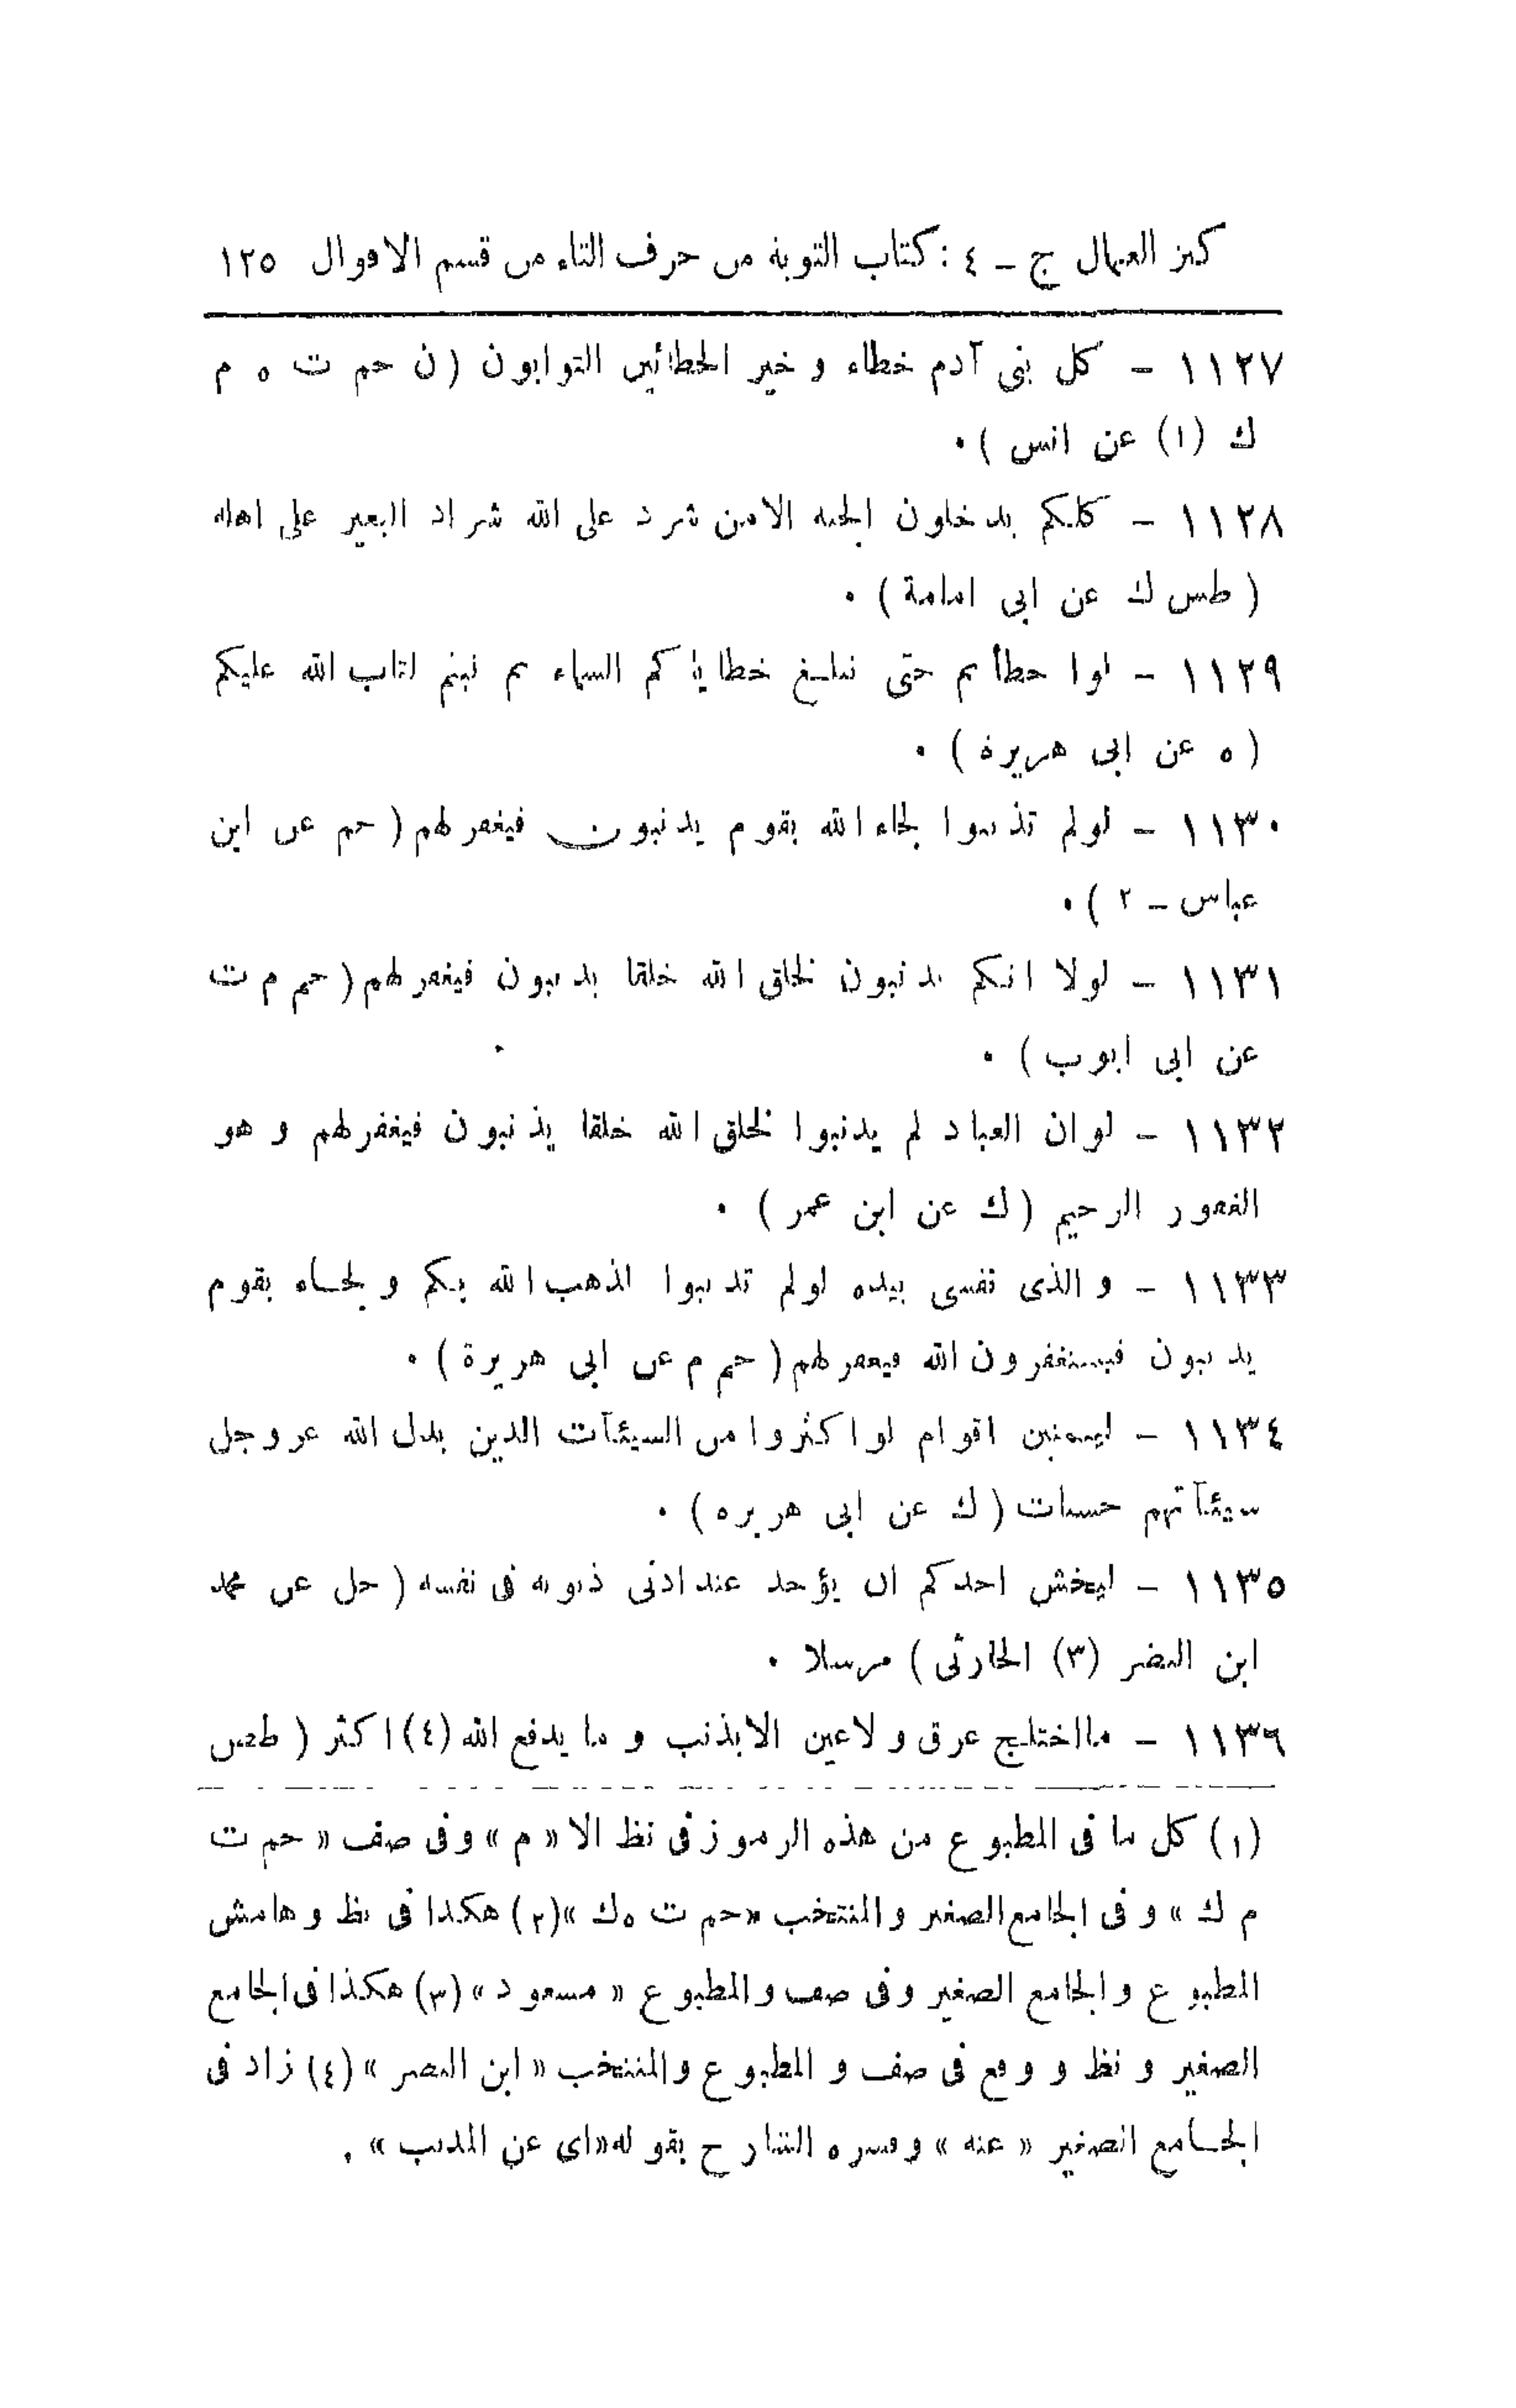 كنز العمال ج ـ ٤ : كتاب التوبة من حرف التاء من قسم الاقوال ١٢٥
١١٢٧ - كل بنى آدم خطاء و خير الخطائين التوابون ( ن حم ت ه م
ك (١) عن انس ) ٠
١١٢٨ - كلكم يدخلون الجنة الا من شرد على الله شراد البعير على اهله
( طس ك عن ابى امامة ) ٠
١١٢٩ - لوا خطأتم حتى تبلغ خطايا كم السماء ثم تبتم لتاب الله عليكم
( ه عن ابى هريرة ) ٠
١١٣٠ - لولم تذنبوا لجاء الله بقوم يذنبون فيغفر لهم ( حم عن ابن
عباس - ٢ ) ٠
١١٣١ - لولا انكم تذنبون لخلق الله خلقا يذنبون فيغفر لهم ( حم م ت
عن ابى ايوب ) ٠
١١٣٢ - لو ان العباد لم يذنبوا لخلق الله خلقا يذنبون فيغفر لهم و هو
الغفور الرحيم ( ك عن ابن عمر ) ٠
١١٣٣ - و الذى نفسى بيده لولم تذنبوا لذهب الله بكم و لجاء بقوم
يذنبون فيستغفرون الله فيغفر لهم ( حم م عن ابى هريرة ) ٠
١١٣٤ - ليتمنين اقوام لو اكثروا من السيئآت الذين بدل الله عز و جل
سيئآتهم حسنات ( ك عن ابى هريرة ) ٠
١١٣٥ - ليخش احدكم ان يؤخذ عند ادنى ذنوبه فى نفسه ( حل عن محمد
ابن النضر (٣) الحارثى ) مرسلا ٠
١١٣٦ - ما اختلج عرق و لا عين الا بذنب و ما يدفع الله (٤) اكثر ( طص
(١) كل ما فى المطبوع من هذه الرموز فى نظ الا « م » وفى صف « حم ت
م ك » و فى الجامع الصغير و المنتخب «حم ت ه ك »(٢) هكذا فى نظ و هامش
المطبوع و الجامع الصغير وفى صف و المطبوع « مسعود » (٣) هكذا فى الجامع
الصغير و نظ و وقع فى صف و المطبوع و المنتخب « ابن النصر » (٤) زاد فى
الجامع الصغير « عنه » و فسره الشارح بقوله«اى عن المذنب » .